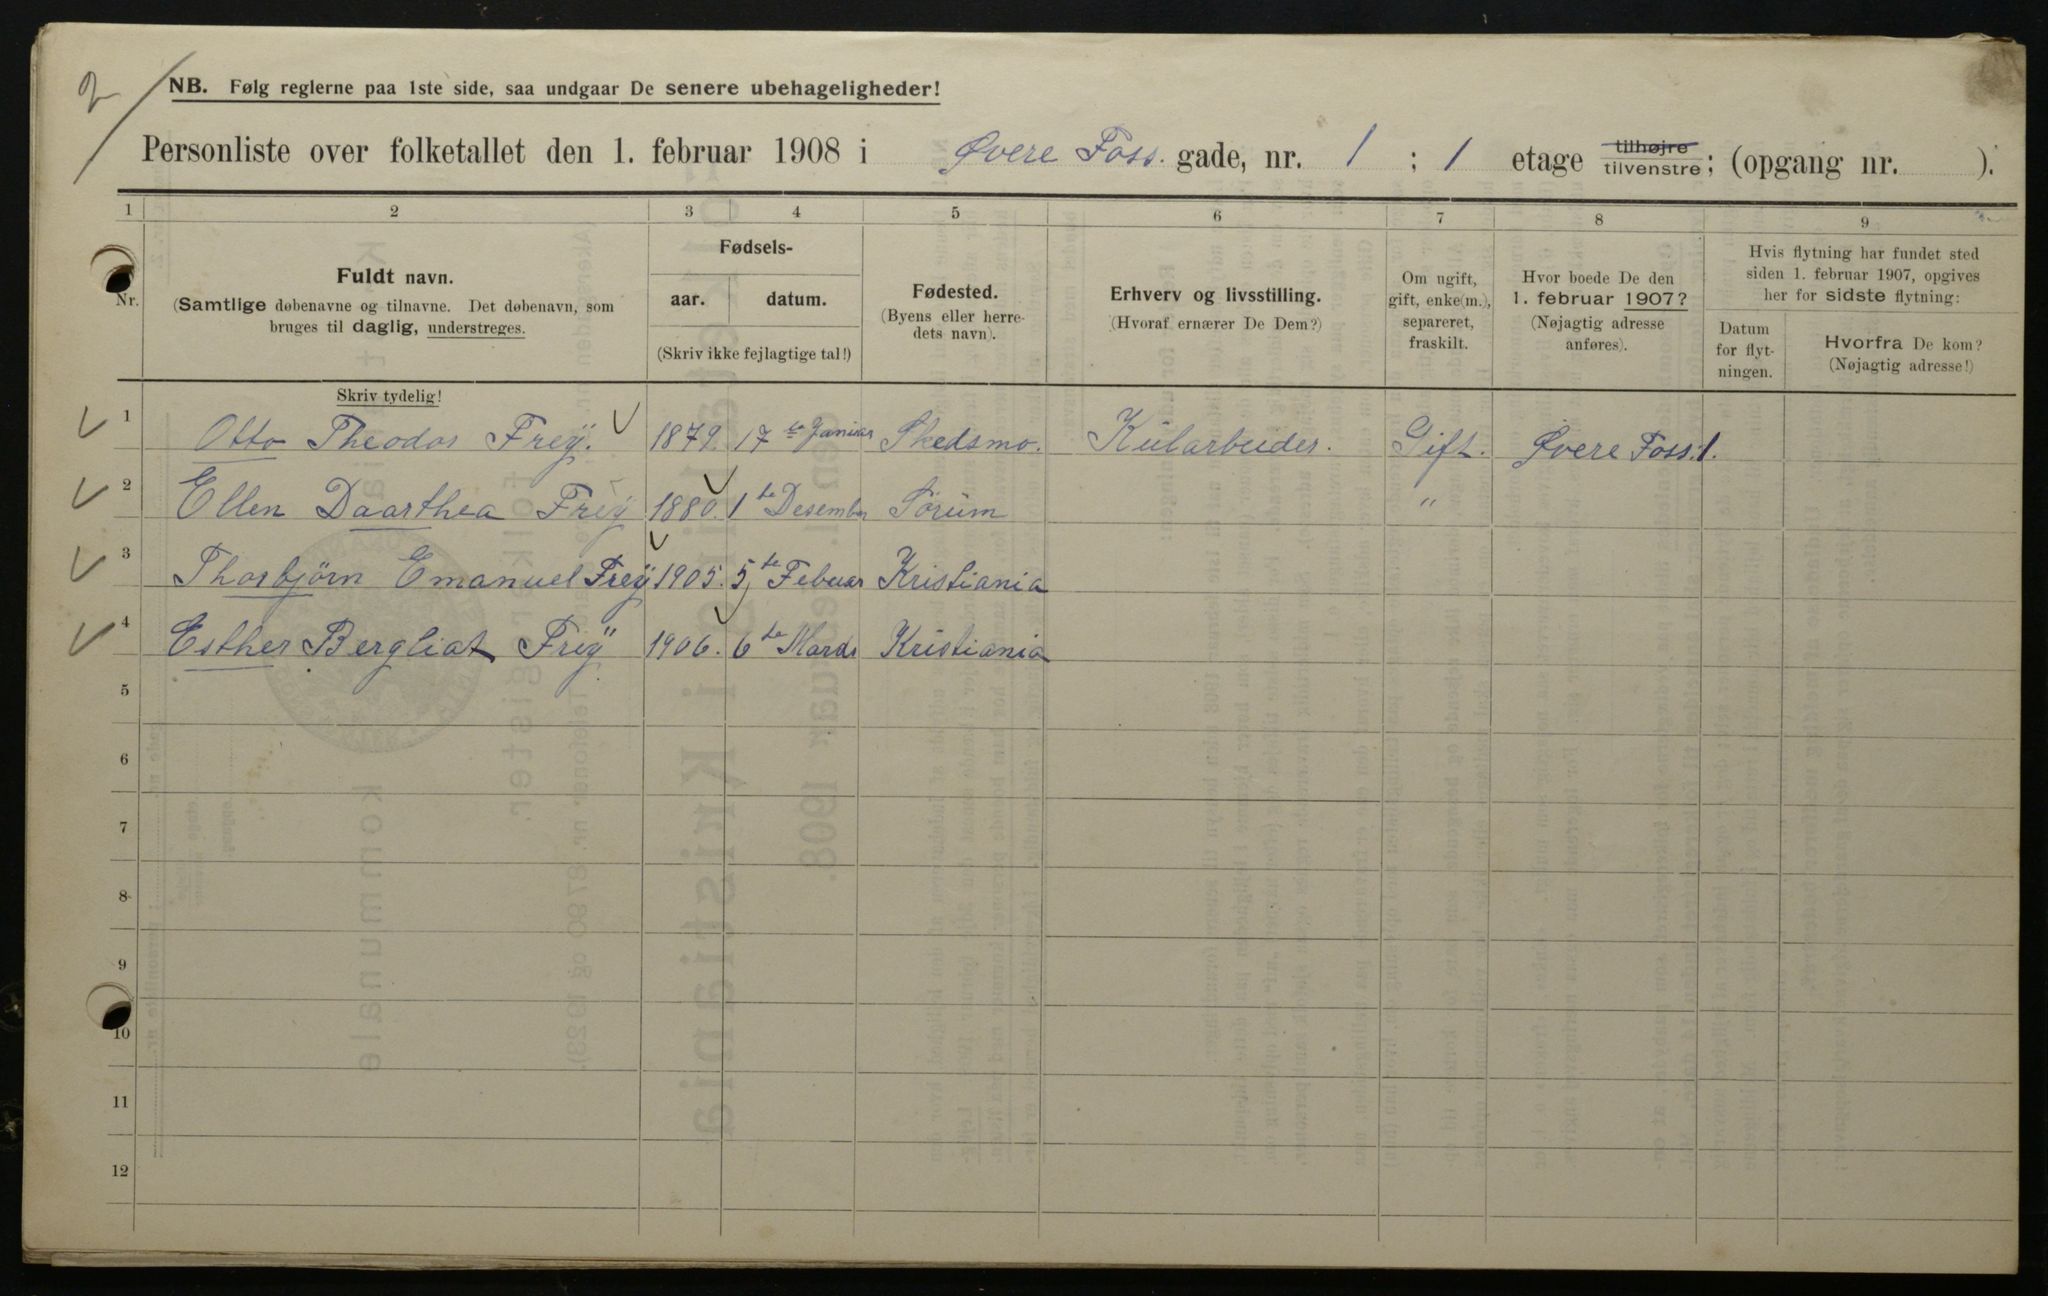 2
NB. Følg reglerne paa 1ste side, saa undgaar De senere ubehageligheder!
Personliste over folketallet den 1. februar 1908 i Øvere Foss. gade, nr. 1 ; 1 etage tilhøjre tilvenstre; (opgang nr. ).
1 2 3 4 5 6 7 8 9
Nr.
Fuldt navn.
(Samtlige døbenavne og tilnavne. Det døbenavn, som
bruges til daglig, understreges.
Skriv tydelig!
Fødsels-
aar. datum.
(Skriv ikke fejlagtige tal!)
Fødested.
(Byens eller herre-
dets navn).
Erhverv og livsstilling.
(Hvoraf ernærer De Dem?)
Om ugift,
gift, enke(m.),
separeret,
fraskilt.
Hvor boede De den
1. februar 1907?
(Nøjagtig adresse
anføres).
Hvis flytning har fundet sted
siden 1. februar 1907, opgives
her for sidste flytning:
Datum
for flyt-
ningen.
Hvorfra De kom?
(Nøjagtig adresse!)
1 Otto Theodor Freÿ. 1879. 17 de Januar Skedsmo. Kularbeider. Gift. Øvere Foss. 1.
2 Ellen Daarthea Freÿ 1880. 1 te Desember Sørum "
3 Thorbjørn Emanuel Freÿ 1905. 5 te Febuar Kristiania
4 Esther Bergliot Freÿ 1906. 6 te Mards Kristiania
5
6
7
8
9
10
11
12